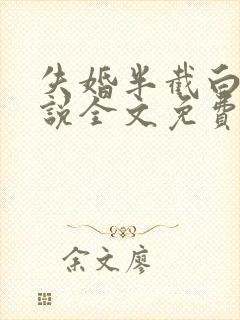 失婚半截白
说全文免費
余文廖